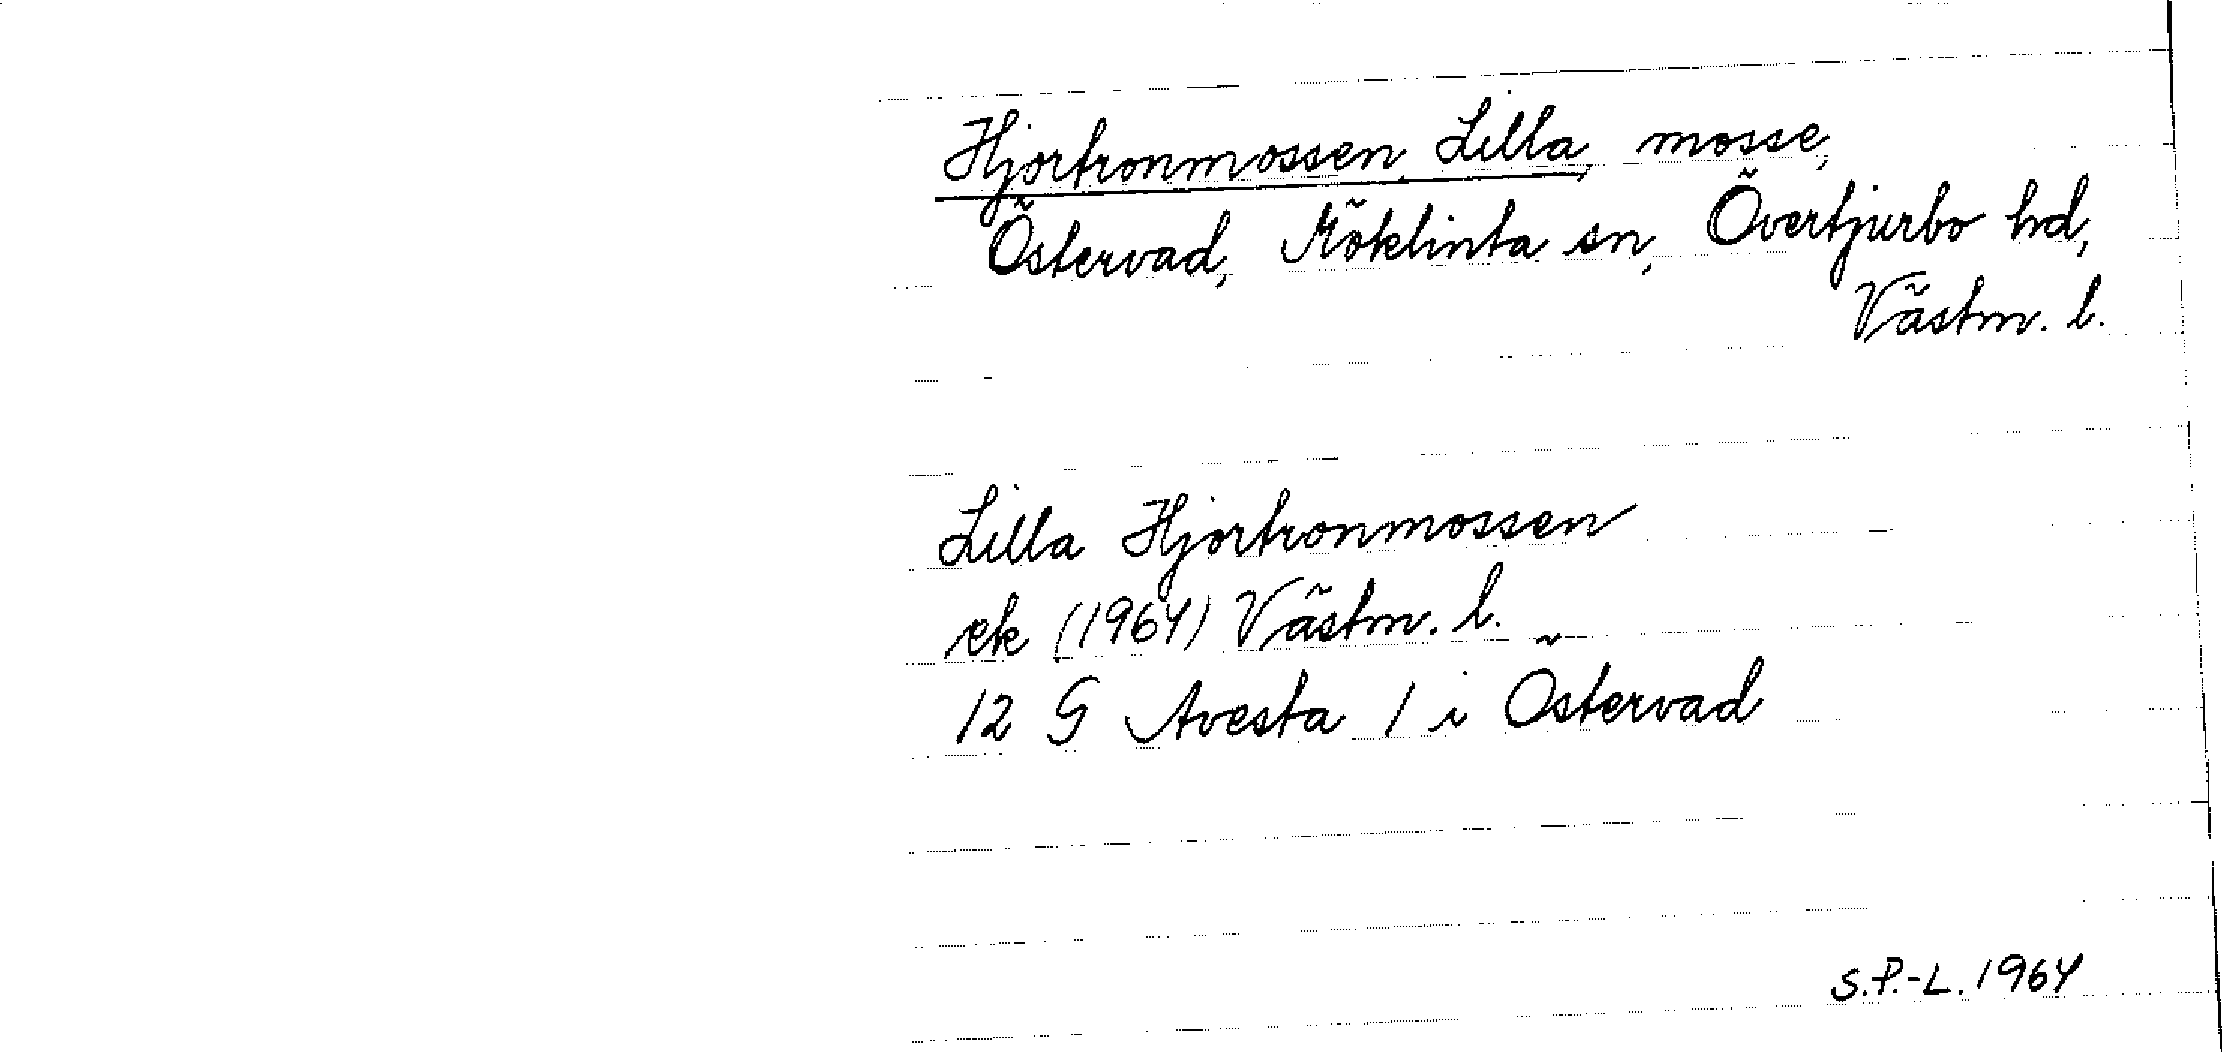 Hjortronmossen, Lilla, mosse,
Östervad, Möklinta sn, Övertjurbo hd,
Västm. l.
Lilla Hjortronmossen
ek (1964) Västm. l.
12 G Avesta 1 i Östervad
S.P.-L. 1964